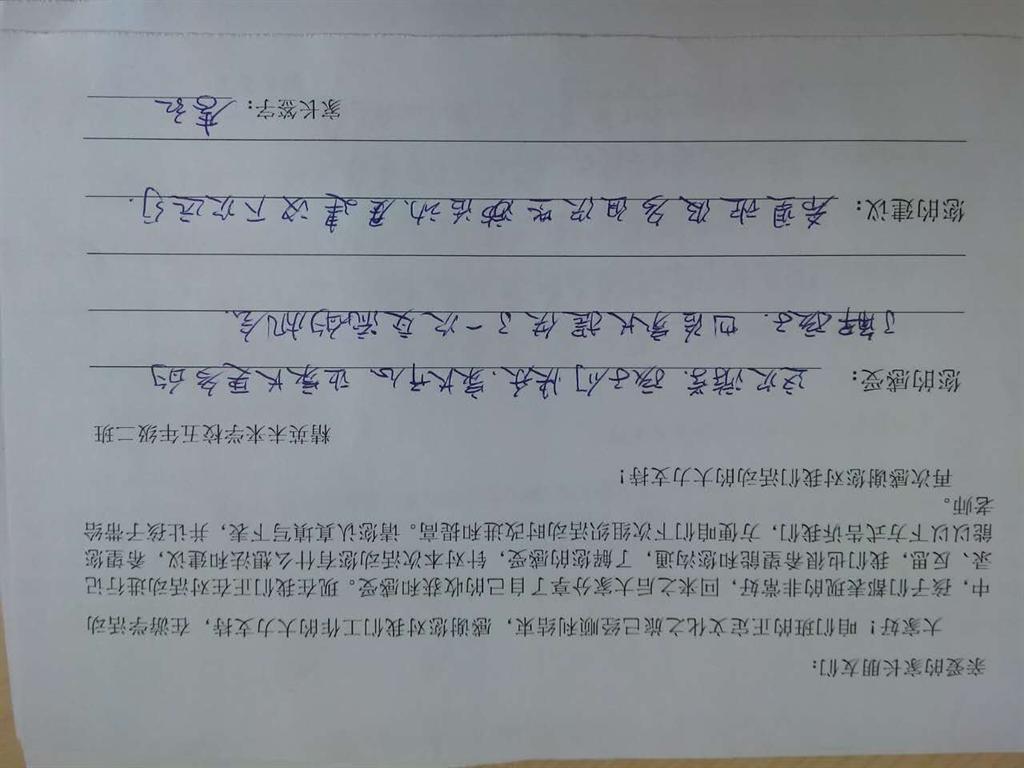 亲爱的家长朋友们:
大家好！咱们班的正定文化之旅已经顺利结束，感谢您对我们工作的大力支持，在游学活动
中，孩子们都表现的非常好，回来之后大家分享了自己的收获和感受。现在我们正在对活动进行记
录、反思，我们也很希望能和您沟通，了解您的感受，针对本次活动您有什么想法和建议，希望您
能以以下方式告诉我们，方便咱们下次组织活动时改进和提高。请您认真填写下表，并让孩子带给
老师。
再次感谢您对我们活动的大力支持！
精英未来学校五年级二班
您的感受: 这次游学.孩子们快乐.家长开心.让家长更多的
了解孩子.也给家长提供了一次交流的机会.
您的建议: 希望班级多组织些游活动.建议下次远行.
家长签字: